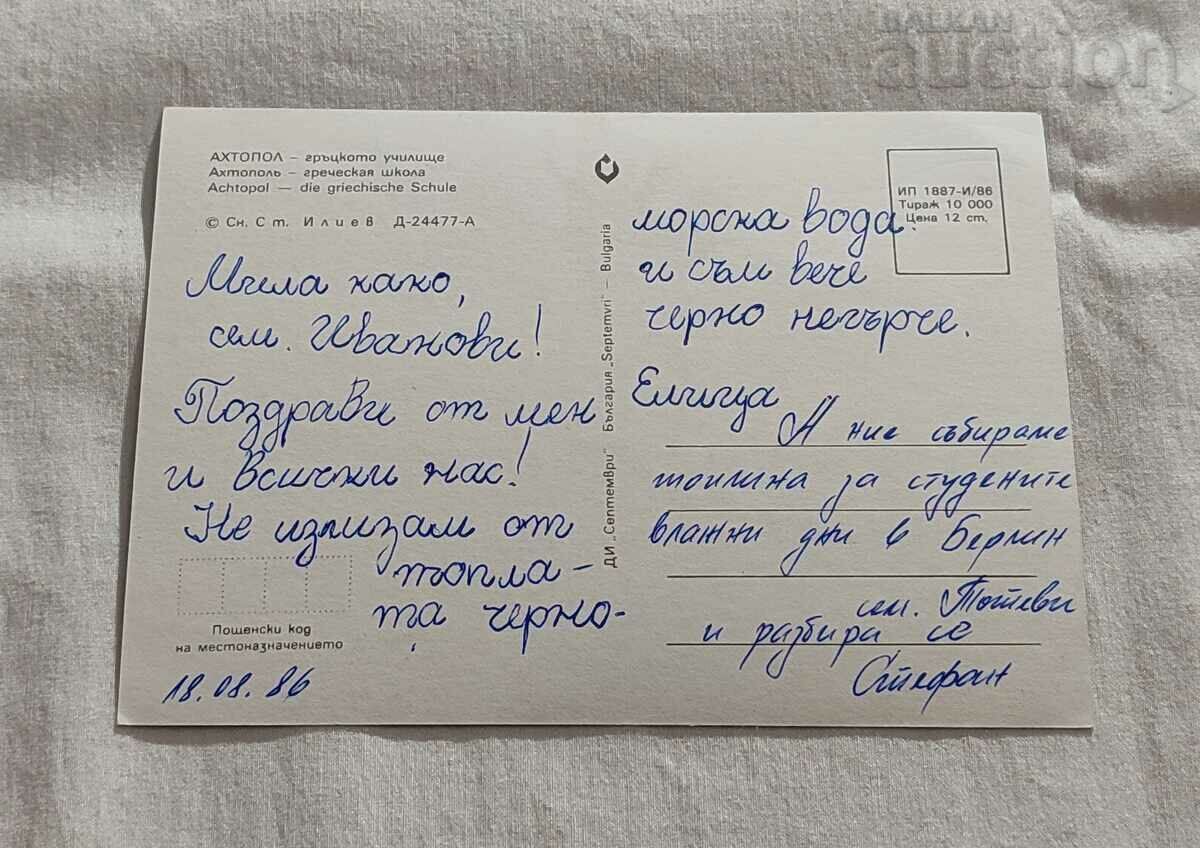 BALKAN
auction
АХТОПОЛ – гръцкото училище
Ахтополь – греческая школа
Achtopol — die griechische Schule
© Сн. Ст. Илиев Д-24477-А
ИП 1887-И/86
Тираж 10 000
Цена 12 ст.
ДИ „Септември" България „Septemvri" – Bulgaria
Мила како,
сем. Иванови!
Поздрави от мен
и всички нас!
Не излизам от
топла-
та черно-
морска вода.
и съм вече
черно негърче.
Елица
А ние събираме
топлина за студените
влажни дни в Берлин
сем. Тотеви
и разбира се
Стефан
Пощенски код
на местоназначението
18.08.86